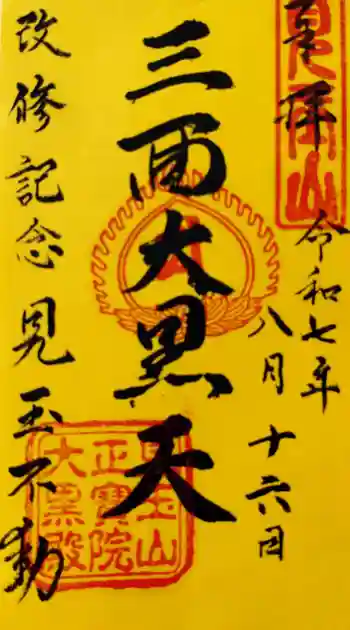 奉拝
令和七年
八月十六日
三面大黒天
改修記念見玉不動
見玉山
正寶院
大黒殿